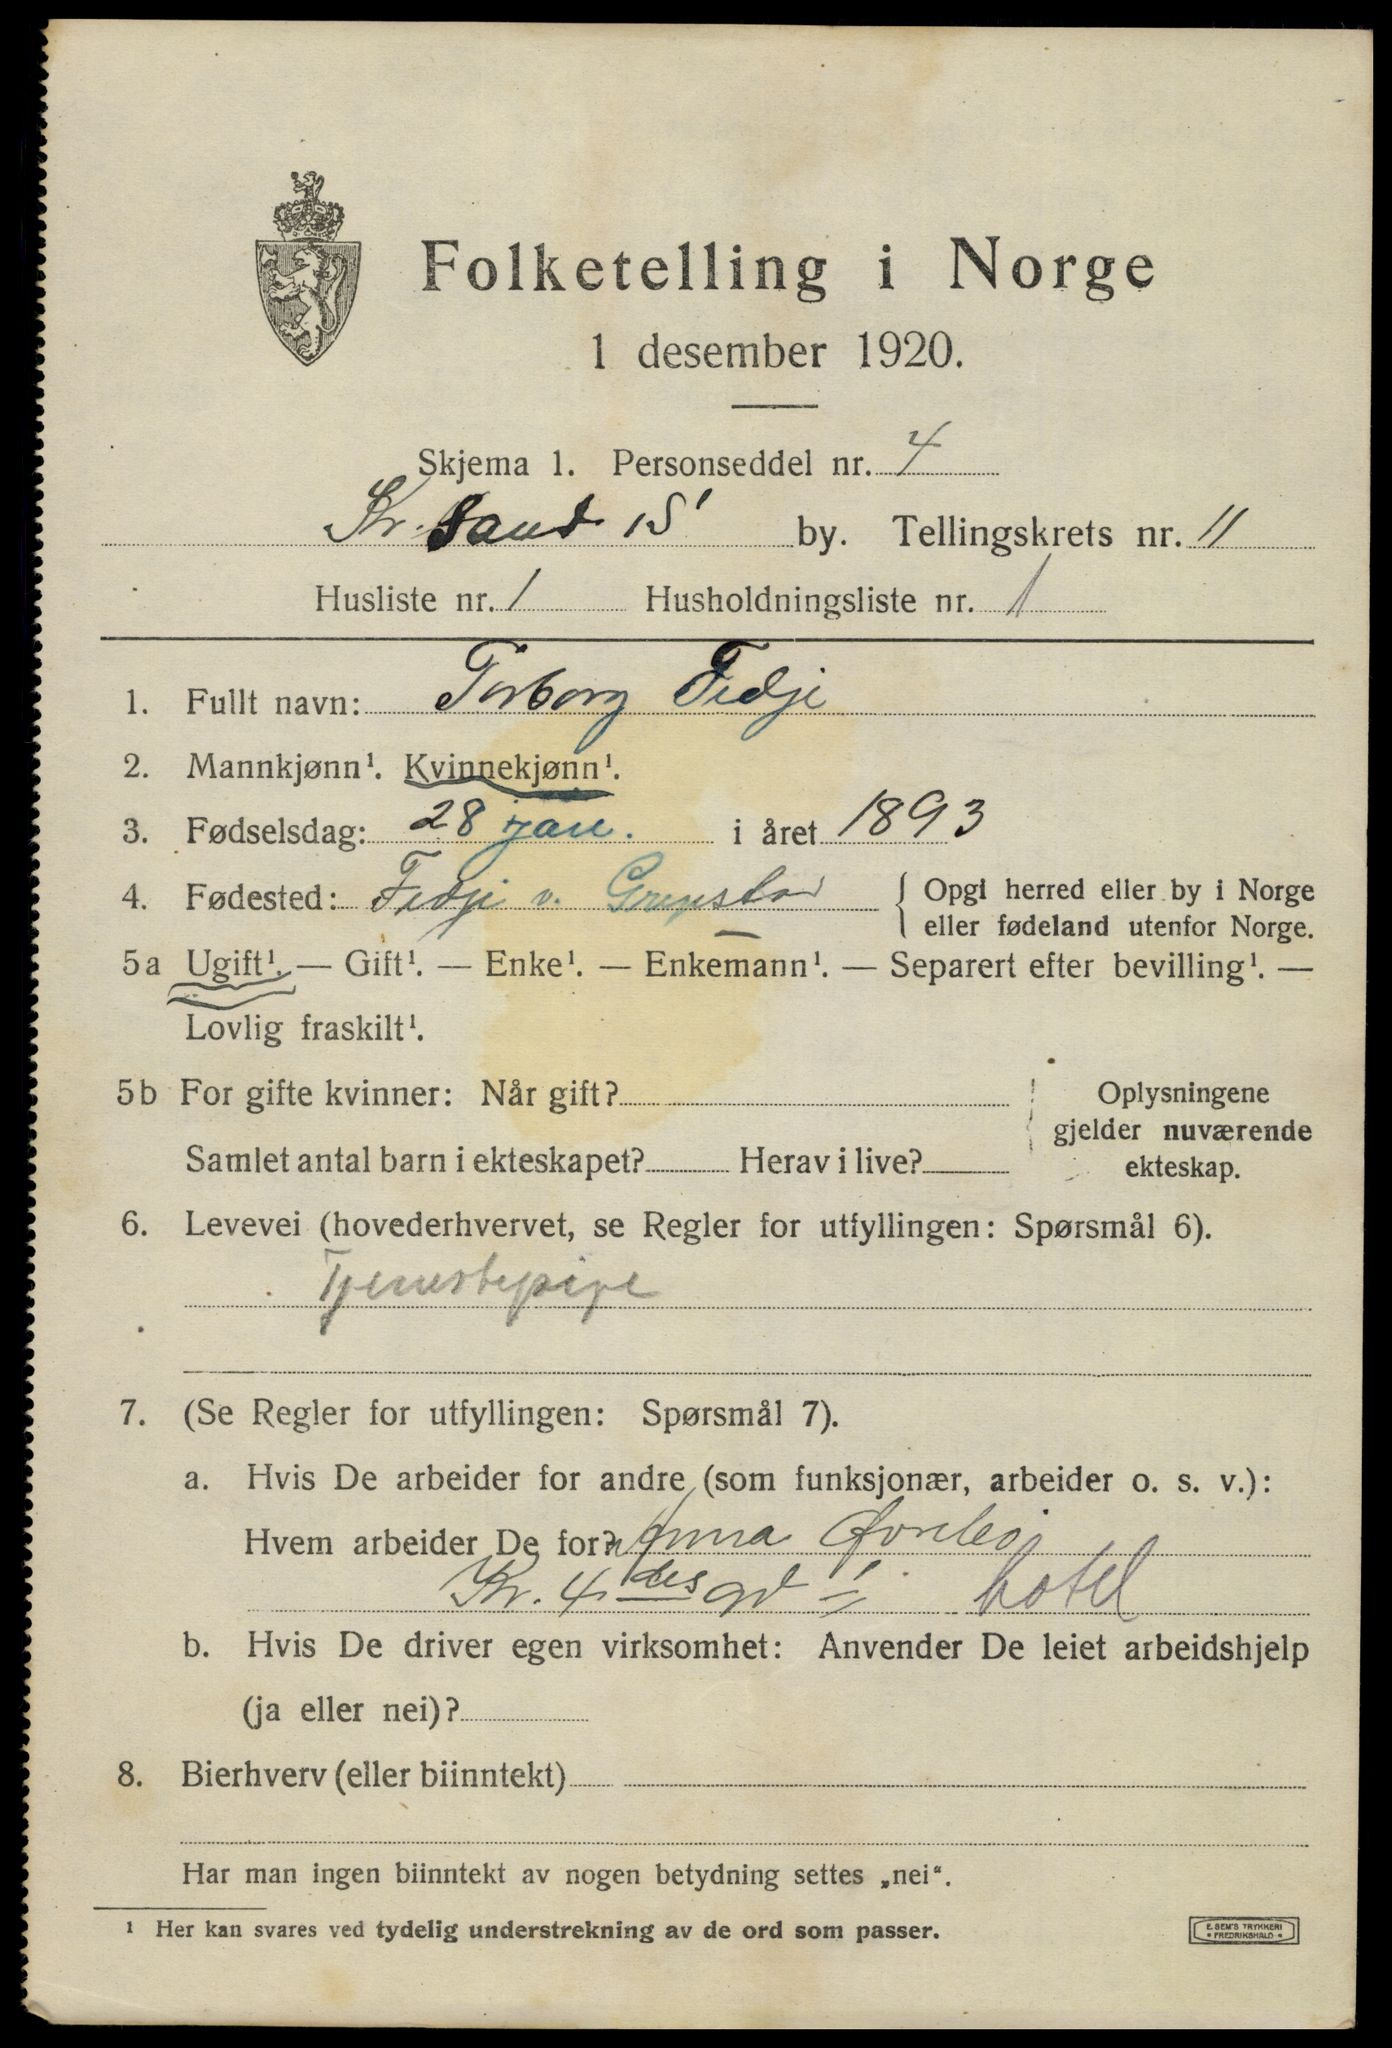 Folketelling i Norge
1 desember 1920.
Skjema 1. Personseddel nr. 4
Kr. Sand S by. Tellingskrets nr. 11
Husliste nr. 1 Husholdningsliste nr. 1
1. Fullt navn: Torborg Fedje
2. Mannkjønn¹. Kvinnekjønn¹.
3. Fødselsdag: 28 jan. i året 1893
4. Fødested: Fedje v. { Opgi herred eller by i Norge
eller fødeland utenfor Norge.
5a Ugift¹. — Gift¹. — Enke¹. — Enkemann¹. — Separert efter bevilling¹. —
Lovlig fraskilt¹.
5b For gifte kvinner: Når gift? Oplysningene
gjelder nuværende
Samlet antal barn i ekteskapet? Herav i live? ekteskap.
6. Levevei (hovederhvervet, se Regler for utfyllingen: Spørsmål 6).
Tjenestepige
7. (Se Regler for utfyllingen: Spørsmål 7).
a. Hvis De arbeider for andre (som funksjonær, arbeider o. s. v.):
Hvem arbeider De for? Anna
Kr. 4 des gd hotel
b. Hvis De driver egen virksomhet: Anvender De leiet arbeidshjelp
(ja eller nei)?
8. Bierhverv (eller biinntekt)
Har man ingen biinntekt av nogen betydning settes „nei“.
¹ Her kan svares ved tydelig understrekning av de ord som passer.
E. SEM'S TRYKKERI
FREDRIKSHALD